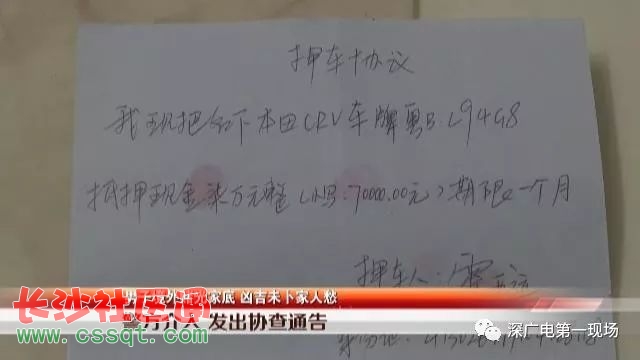 押车协议
我现把名下本田CRV车牌粤B·L94G8
抵押现金柒万元整(小写:70000.00元)期限一个月
押车人:雷
家底 凶吉未卜家人愁
警方介入 发出协查通告
长沙社区网
www.cssqt.com
深广电第一现场